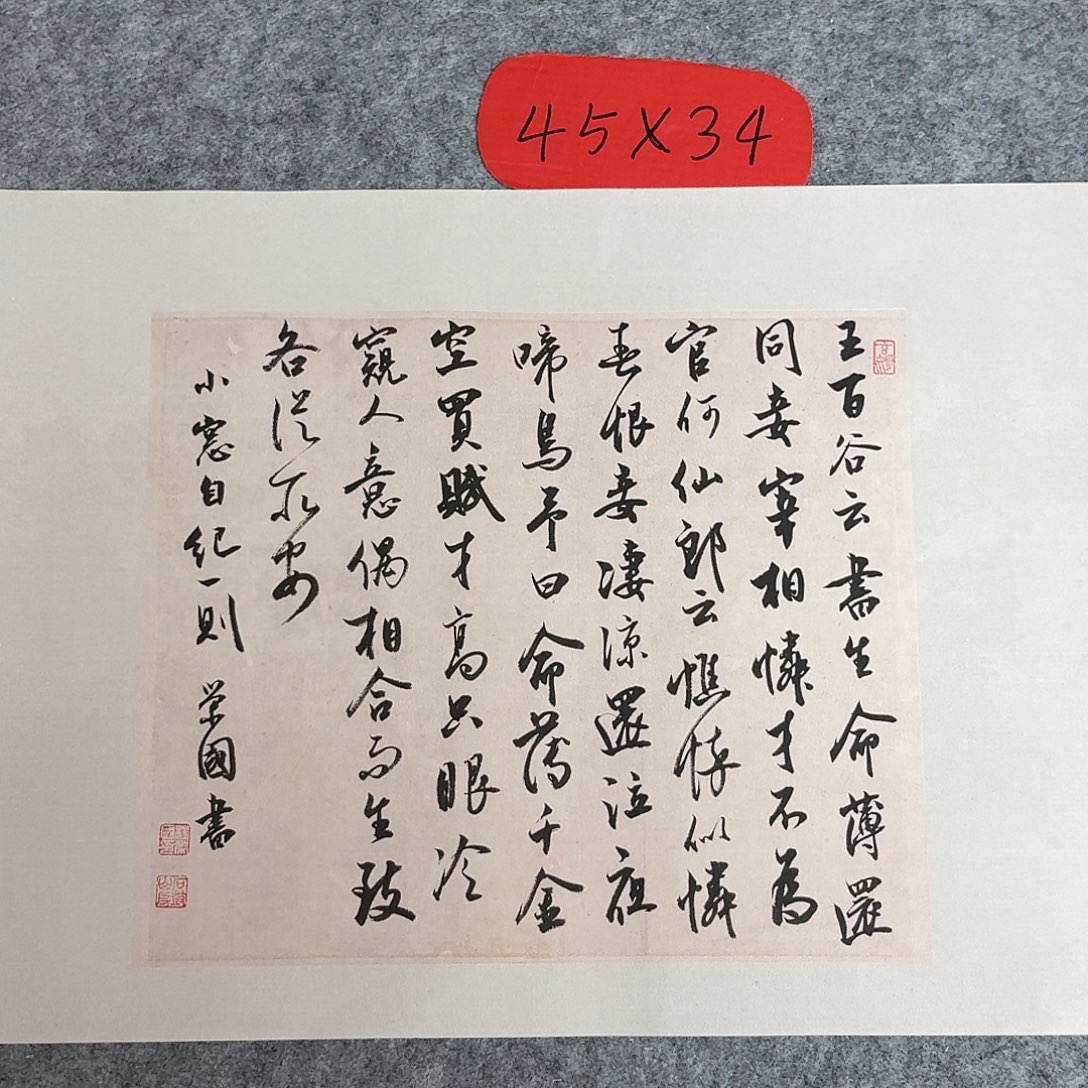 45X34
王百谷云書生命薄還
同妾宰相憐才不為
官何仙郎云憔悴似憐
春恨妾凄涼還泣夜
啼烏予曰命薄千金
空買賦才高只眼冷
窺人意偶相合而生致
各從
小窓自紀一則 榮國書